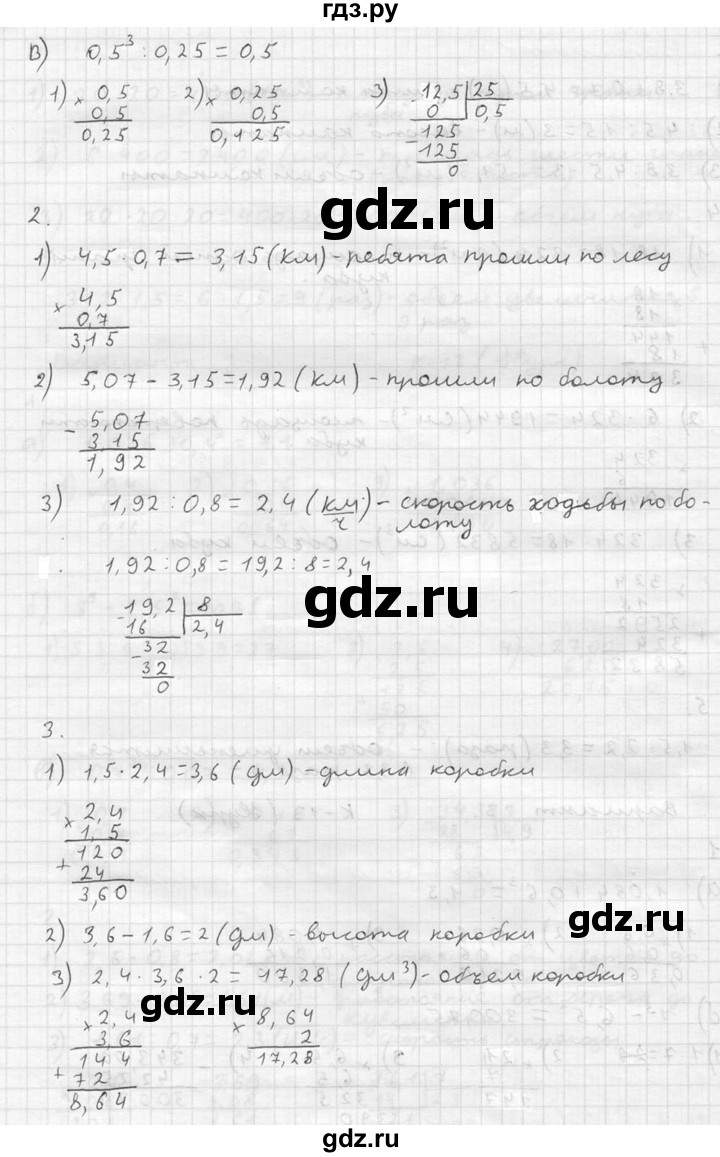 гдз.ру
В) 0,5³ : 0,25 = 0,5
1) × 0,5 2) × 0,25 3) - 12,5 | 25
0,5 0,5 0 0,5
0,25 0,125 - 125
125
0
2.
gdz.ru
1) 4,5 · 0,7 = 3,15 (км) - ребята прошли по лесу
× 4,5
0,7
3,15
2) 5,07 - 3,15 = 1,92 (км) - прошли по болоту
- 5,07
3,15
1,92
3) 1,92 : 0,8 = 2,4 (км/ч) - скорость ходьбы по бо-
лоту
1,92 : 0,8 = 19,2 : 8 = 2,4
gdz.ru
- 19,2 | 8
16 2,4
- 32
32
0
3.
1) 1,5 · 2,4 = 3,6 (дм) - длина коробки
× 2,4
1,5
+ 120
24
3,60
gdz.ru
2) 3,6 - 1,6 = 2 (дм) - высота коробки
3) 2,4 · 3,6 · 2 = 17,28 (дм³) - объем коробки
gdz.ru
× 2,4 × 8,64
3,6 2
+ 144 17,28
72
8,64
gdz.ru